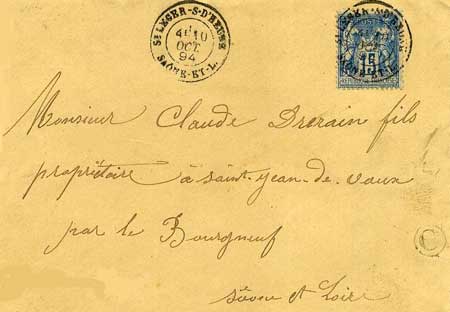 ST LEGER-S-D'HEUNE
4E 10
OCT
94
SAÔNE-ET-L.
15
Monsieur Claude Drerain fils
propriétaire à saint-jean-de-vaux
par le Bourgneuf
et Loire
C